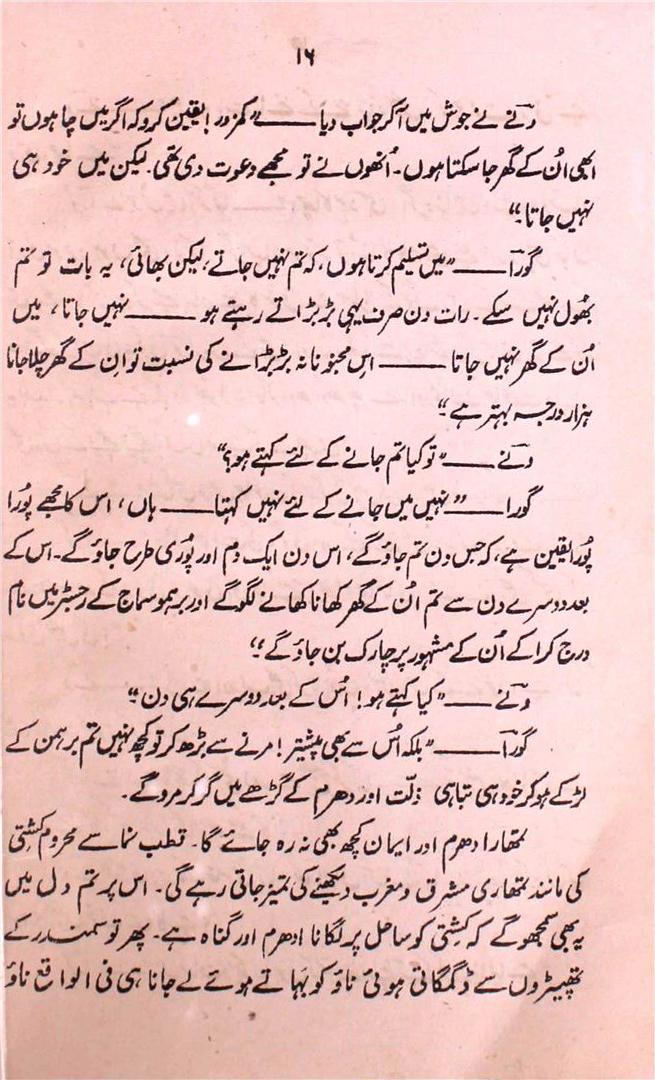 ۱۶
ونے نے جوش میں آکر جواب دیا —— ”کمزور! یقین کرو کہ اگر میں چاہوں تو
ابھی اُن کے گھر جا سکتا ہوں۔ اُنھوں نے تو مجھے دعوت دی تھی۔ لیکن میں خود ہی
نہیں جاتا۔“
گورا —— ”میں تسلیم کرتا ہوں، کہ تم نہیں جاتے، لیکن بھائی، یہ بات تو تم
بھُول نہیں سکے۔ رات دن صرف یہی بڑبڑاتے رہتے ہو —— نہیں جاتا، میں
اُن کے گھر نہیں جاتا —— اِس مجنونانہ بڑبڑانے کی نسبت تو اِن کے گھر چلا جانا
ہزار درجہ بہتر ہے۔“
ونے —— ”تو کیا تم جانے کے لئے کہتے ہو؟“
گورا —— ”نہیں میں جانے کے لئے نہیں کہتا —— ہاں، اس کا مجھے پُورا
پُورا یقین ہے، کہ جس دن تم جاؤ گے، اس دن ایک دم اور پُوری طرح جاؤ گے۔ اس کے
بعد دوسرے دن سے تم اُن کے گھر کھانا کھانے لگو گے اور برہمو سماج کے رجسٹر میں نام
درج کرا کے اُن کے مشہور پرچارک بن جاؤ گے؛“
ونے —— ”کیا کہتے ہو! اُس کے بعد دوسرے ہی دن۔“
گورا —— ”بلکہ اُس سے بھی پیشتر! مرنے سے بڑھ کر تو کچھ نہیں تم برہمن کے
لڑکے ہو کر خود ہی تباہی ذلّت اور دھرم کے گڑھے میں گر کر مرو گے۔
تمھارا دھرم اور ایمان کچھ بھی نہ رہ جائے گا۔ قطب نما سے محروم کشتی
کی مانند تمھاری مشرق و مغرب دیکھنے کی تمیز جاتی رہے گی۔ اس پر تم دل میں
یہ بھی سمجھو گے کہ کشتی کو ساحل پر لگانا ادھرم اور گناہ ہے۔ پھر تو سمندر کے
تھپیڑوں سے ڈگمگاتی ہوئی ناؤ کو بہاتے ہوئے لے جانا ہی فی الواقع ناؤ